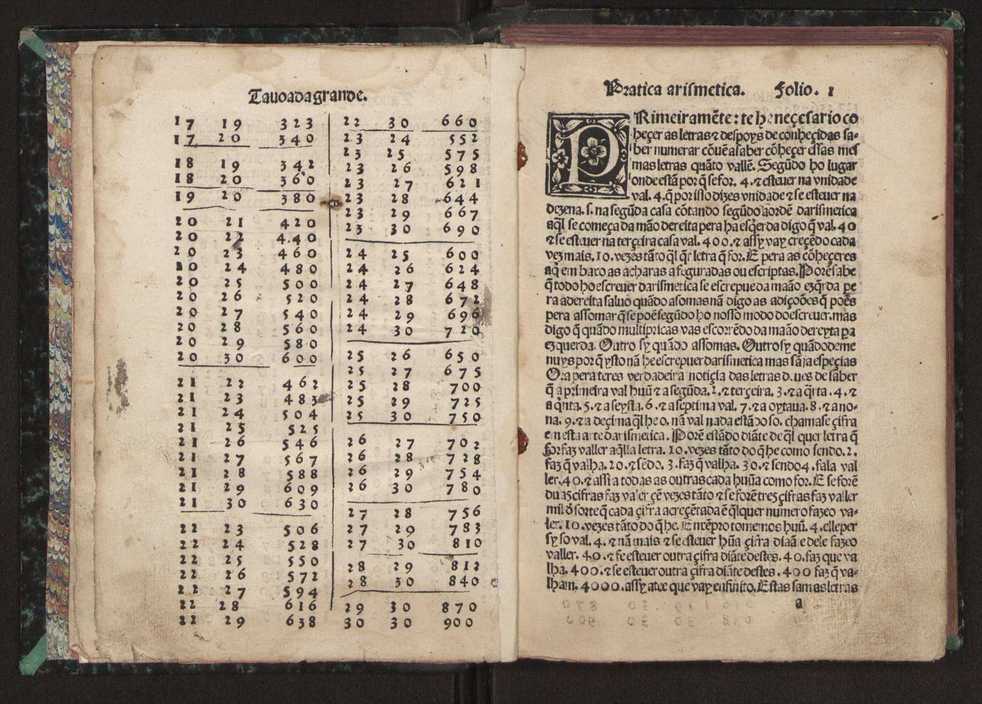 Tauoada grande.
17 19 323
17 20 340
18 19 342
18 20 360
19 20 380
20 21 420
20 22 440
20 23 460
20 24 480
20 25 500
20 26 520
20 27 540
20 28 560
20 29 580
20 30 600
21 22 462
21 23 483
21 24 504
21 25 525
21 26 546
21 27 567
21 28 588
21 29 609
21 30 630
22 23 506
22 24 528
22 25 550
22 26 572
22 27 594
22 28 616
22 29 638
22 30 660
23 24 552
23 25 575
23 26 598
23 27 621
23 28 644
23 29 667
23 30 690
24 25 600
24 26 624
24 27 648
24 28 672
24 29 696
24 30 720
25 26 650
25 27 675
25 28 700
25 29 725
25 30 750
26 27 702
26 28 728
26 29 754
26 30 780
27 28 756
27 29 783
27 30 810
28 29 812
28 30 840
29 30 870
30 30 900
Pratica arismetica. Folio. 1
PRimeiramẽte: te he neçesario co
heçer as letras ⁊ despoys de conheçidas sa-
ber numerar cõuẽ a saber cõheçer essas mes
mas letras quãto vallẽ. Segũdo ho lugar
onde está por q̃ se for. 4. ⁊ esteuer na vnidade
val. 4. q̃ por isso dizes vnidade ⁊ se esteuer na
dezena. s. na segũda casa cõtando segũdo a ordẽ darismetica
aq̃l se começa da mão dereita pera ha esq̃erda digo q̃ val. 40
⁊ se estauer na terçeira casa val. 400. ⁊ assy vay creçẽdo cada
vez mais. 10. vezes tãto q̃l q̃r letra q̃ for. E pera as cõheçeres
aq̃ em baxo as acharas afeguradas ou escriptas. Porẽ sabe
q̃ todo ho escreuer darismetica se escrepue da maão ezq̃rda pe
ra a dereita saluo quãdo asomas nã digo as adições q̃ poẽs
pera assomar q̃ se põe segũdo ho nosso modo do escreuer. mas
digo q̃ quãdo multipricas vas escorrẽdo da maão dereyta pa
ezquerda. Outro sy quãdo assomas. Outrosy quãdo deme
nuys por q̃ ysto nã he escrepuer darismetica mas sam espeçias
Ora pera teres verdadeira notiçia das letras d. ues de saber
q̃ a primeira val huũ ⁊ a segũda. 2. ⁊ terçeira. 3. ⁊ a q̃rta. 4. ⁊
a q̃nta. 5. ⁊ a seysta. 6. ⁊ a septima val. 7. ⁊ a oytaua. 8. ⁊ a no-
na. 9. ⁊ a deçima q̃l he o. nã val nada está o so. chamase çifra
em esta arte darismetica. Porẽ estãdo diãte de q̃l quer letra q̃
for faz valler aq̃lla letra. 10. vezes tãto do q̃ he como sendo. 2.
faz q̃ valha. 20. ⁊ sẽdo. 3. faz q̃ valha. 30. ⁊ sendo 4. fala val
ler. 40. ⁊ assi a todas as outras cada huũa como for. E se forẽ
duas cifras faz valer çẽ vezes tãto ⁊ se forẽ trez çifras faz valler
mil ó sorte q̃ cada çifra acreçẽtada ẽ q̃lquer numero fazeo va-
ler. 10. vezes tãto do q̃ he. Enxẽpro tomemos huũ. 4. elle per
sy so val. 4. ⁊ nã mais ⁊ se esteuer hũa çifra diãte dele fazeo
valler. 40. ⁊ se esteuer outra çifra diãte destes. 40. faz que va
lha. 400. ⁊ se esteuer outra çifra diãte destes. 400 faz q̃ va-
lham. 4000. assy ate que vay enfinito. Estas sam as letras
a